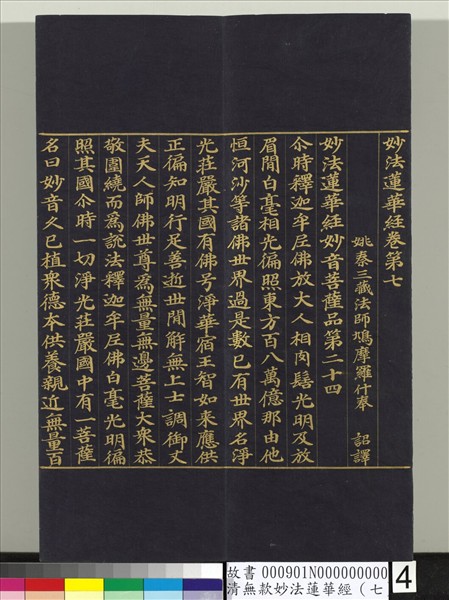 妙法蓮華經卷第七
姚秦三藏法師鳩摩羅什奉 詔譯
妙法蓮華經妙音菩薩品第二十四
尒時釋迦牟尼佛放大人相肉髻光明及放
眉間白毫相光徧照東方百八萬億那由他
恒河沙等諸佛世界過是數已有世界名淨
光莊嚴其國有佛号淨華宿王智如来應供
正徧知明行足善逝世間解無上士調御丈
夫天人師佛世尊為無量無邊菩薩大衆恭
敬圍繞而為說法釋迦牟尼佛白毫光明徧
照其國尒時一切淨光莊嚴國中有一菩薩
名曰妙音久已植衆德本供養親近無量百
故書 000901N000000000
清無款妙法蓮華經（七
4